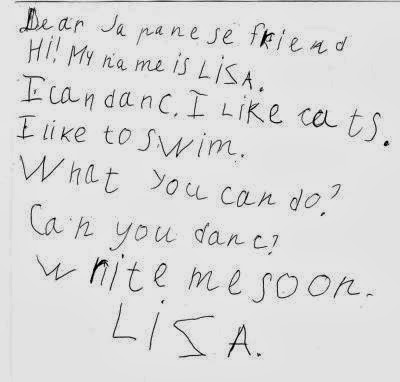 Dear Japanese friend
Hi! My name is LiSA.
I can danc. I Like cats.
I like to swim.
What you can do?
Can you danc?
Write me soon.
LiSA.